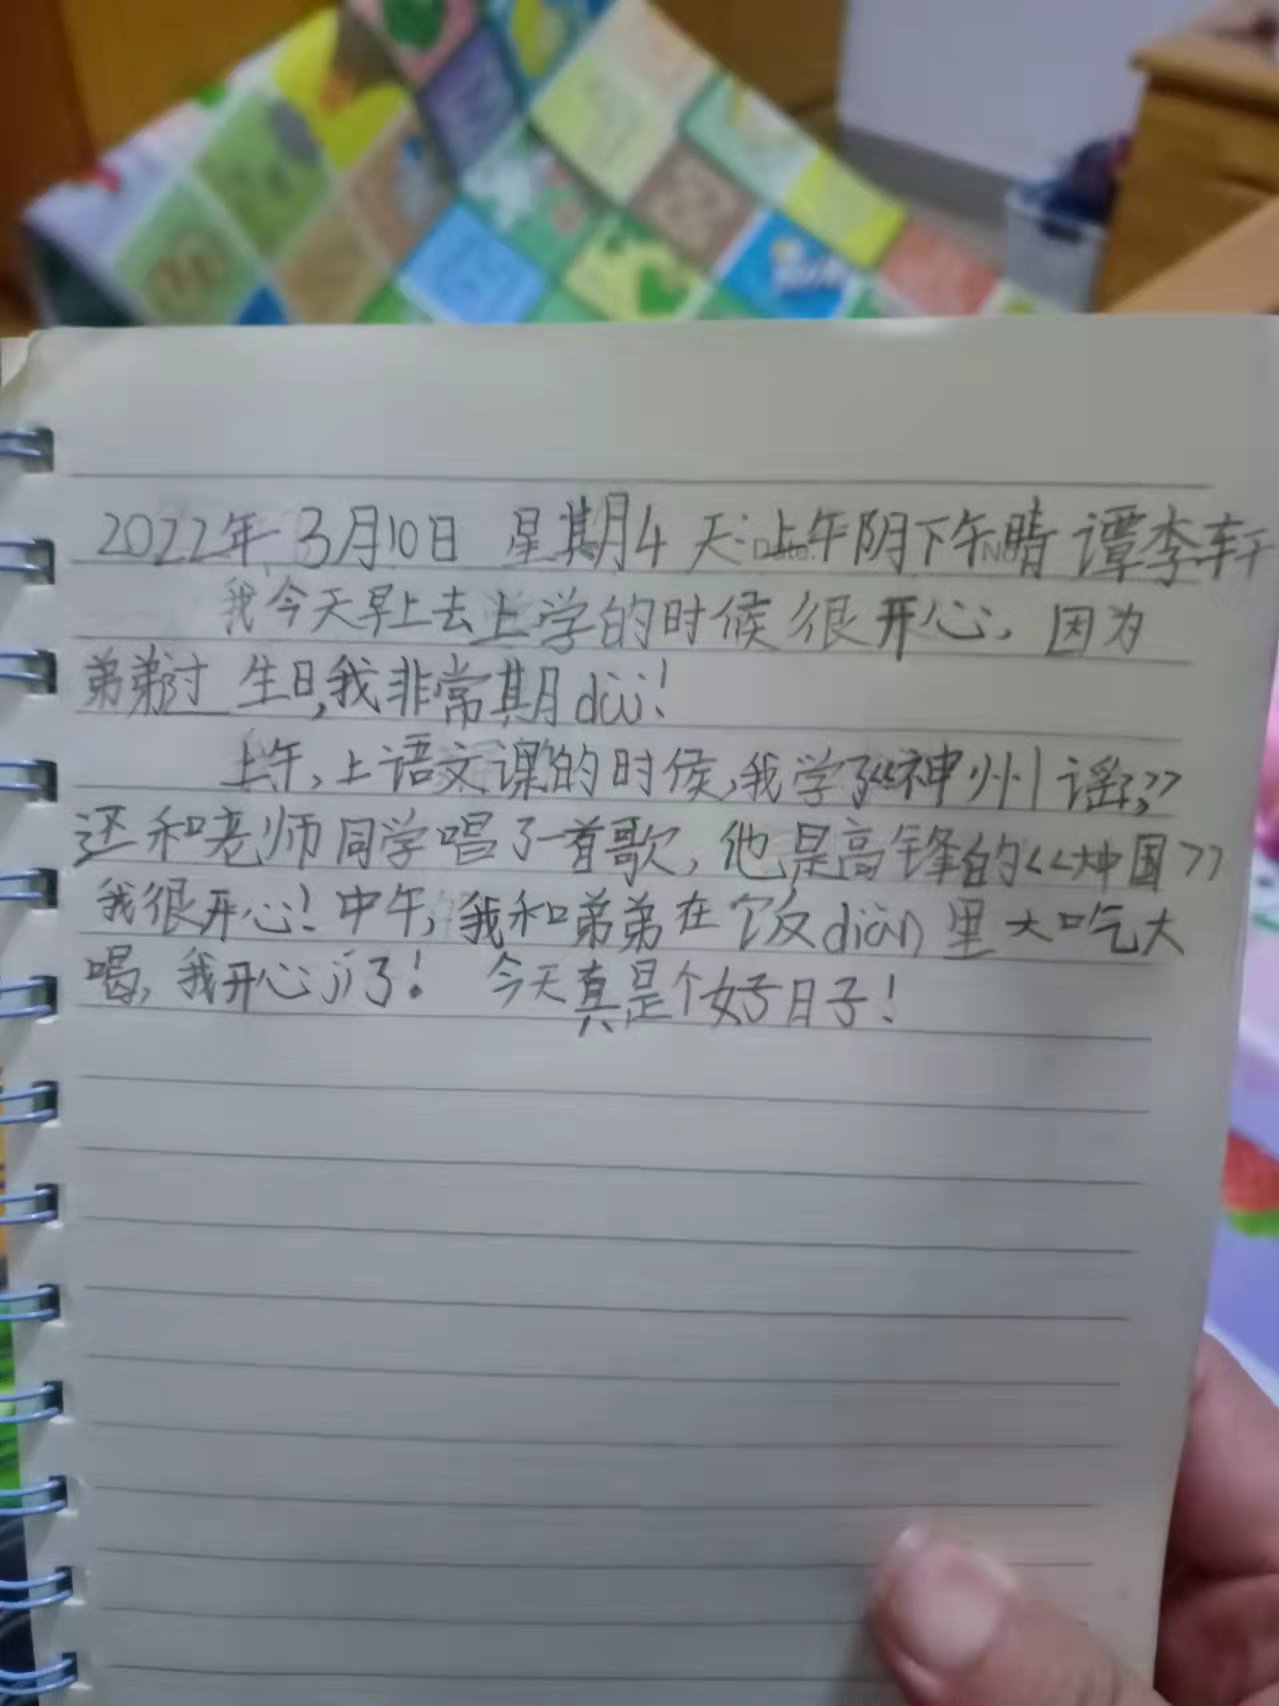 2022年3月10日 星期4 天:上午阴下午晴 谭李轩
我今天早上去上学的时候很开心,因为
弟弟过生日,我非常期dài!
上午,上语文课的时候,我学了《神州谣》
还和老师同学唱了一首歌,他是高锋的《《中国》》
我很开心!中午,我和弟弟在饭diàn里大吃大
喝,我开心jí了! 今天真是个好日子!